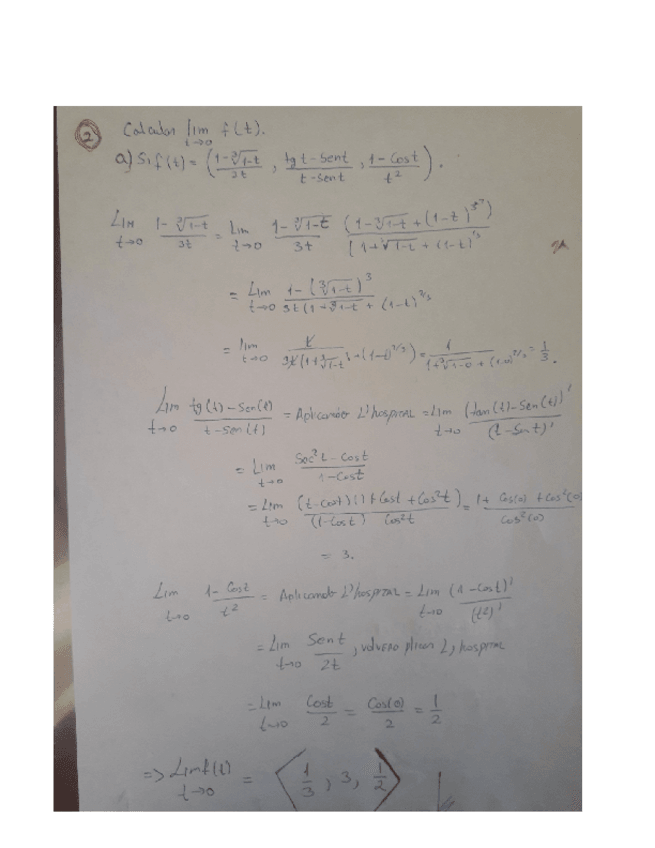 ② Calcular lim t→0 f(t).
a) Si f(t) = ( (1-∛(1-t))/3t , (tg t - Sent)/(t - Sent) , (1 - Cost)/t² ).
Lim t→0 (1-∛(1-t))/3t = Lim t→0 (1-∛(1-t))/3t
= Lim t→0 (1-(∛(1-t))³)/(3t(1+∛(1-t) + (1-t)^2/3
= lim t→0
= 1/3.
Lim t→0 (tg(t) - Sen(t))/(t - Sen(t)) = Aplicando L'hospital = Lim t→0 (tan(t) - Sen(t))'/(t - Sen t)'
= Lim t→0 (Sec² t - Cost)/(1 - Cost)
= Lim t→0 (1 + Cost + Cos²t)/Cos²t = (1 + Cos(0) + Cos²(0)/Cos²(0)
= 3.
Lim t→0 (1 - Cost)/t² = Aplicando L'hospital = Lim t→0 (1 - Cost)'/(t²)'
= Lim t→0 Sent/2t , L, hospital
= Lim t→0 Cost/2 = Cos(0)/2 = 1/2
=> Lim f(t) t→0 = ⟨ 1/3 , 3, 1/2 ⟩